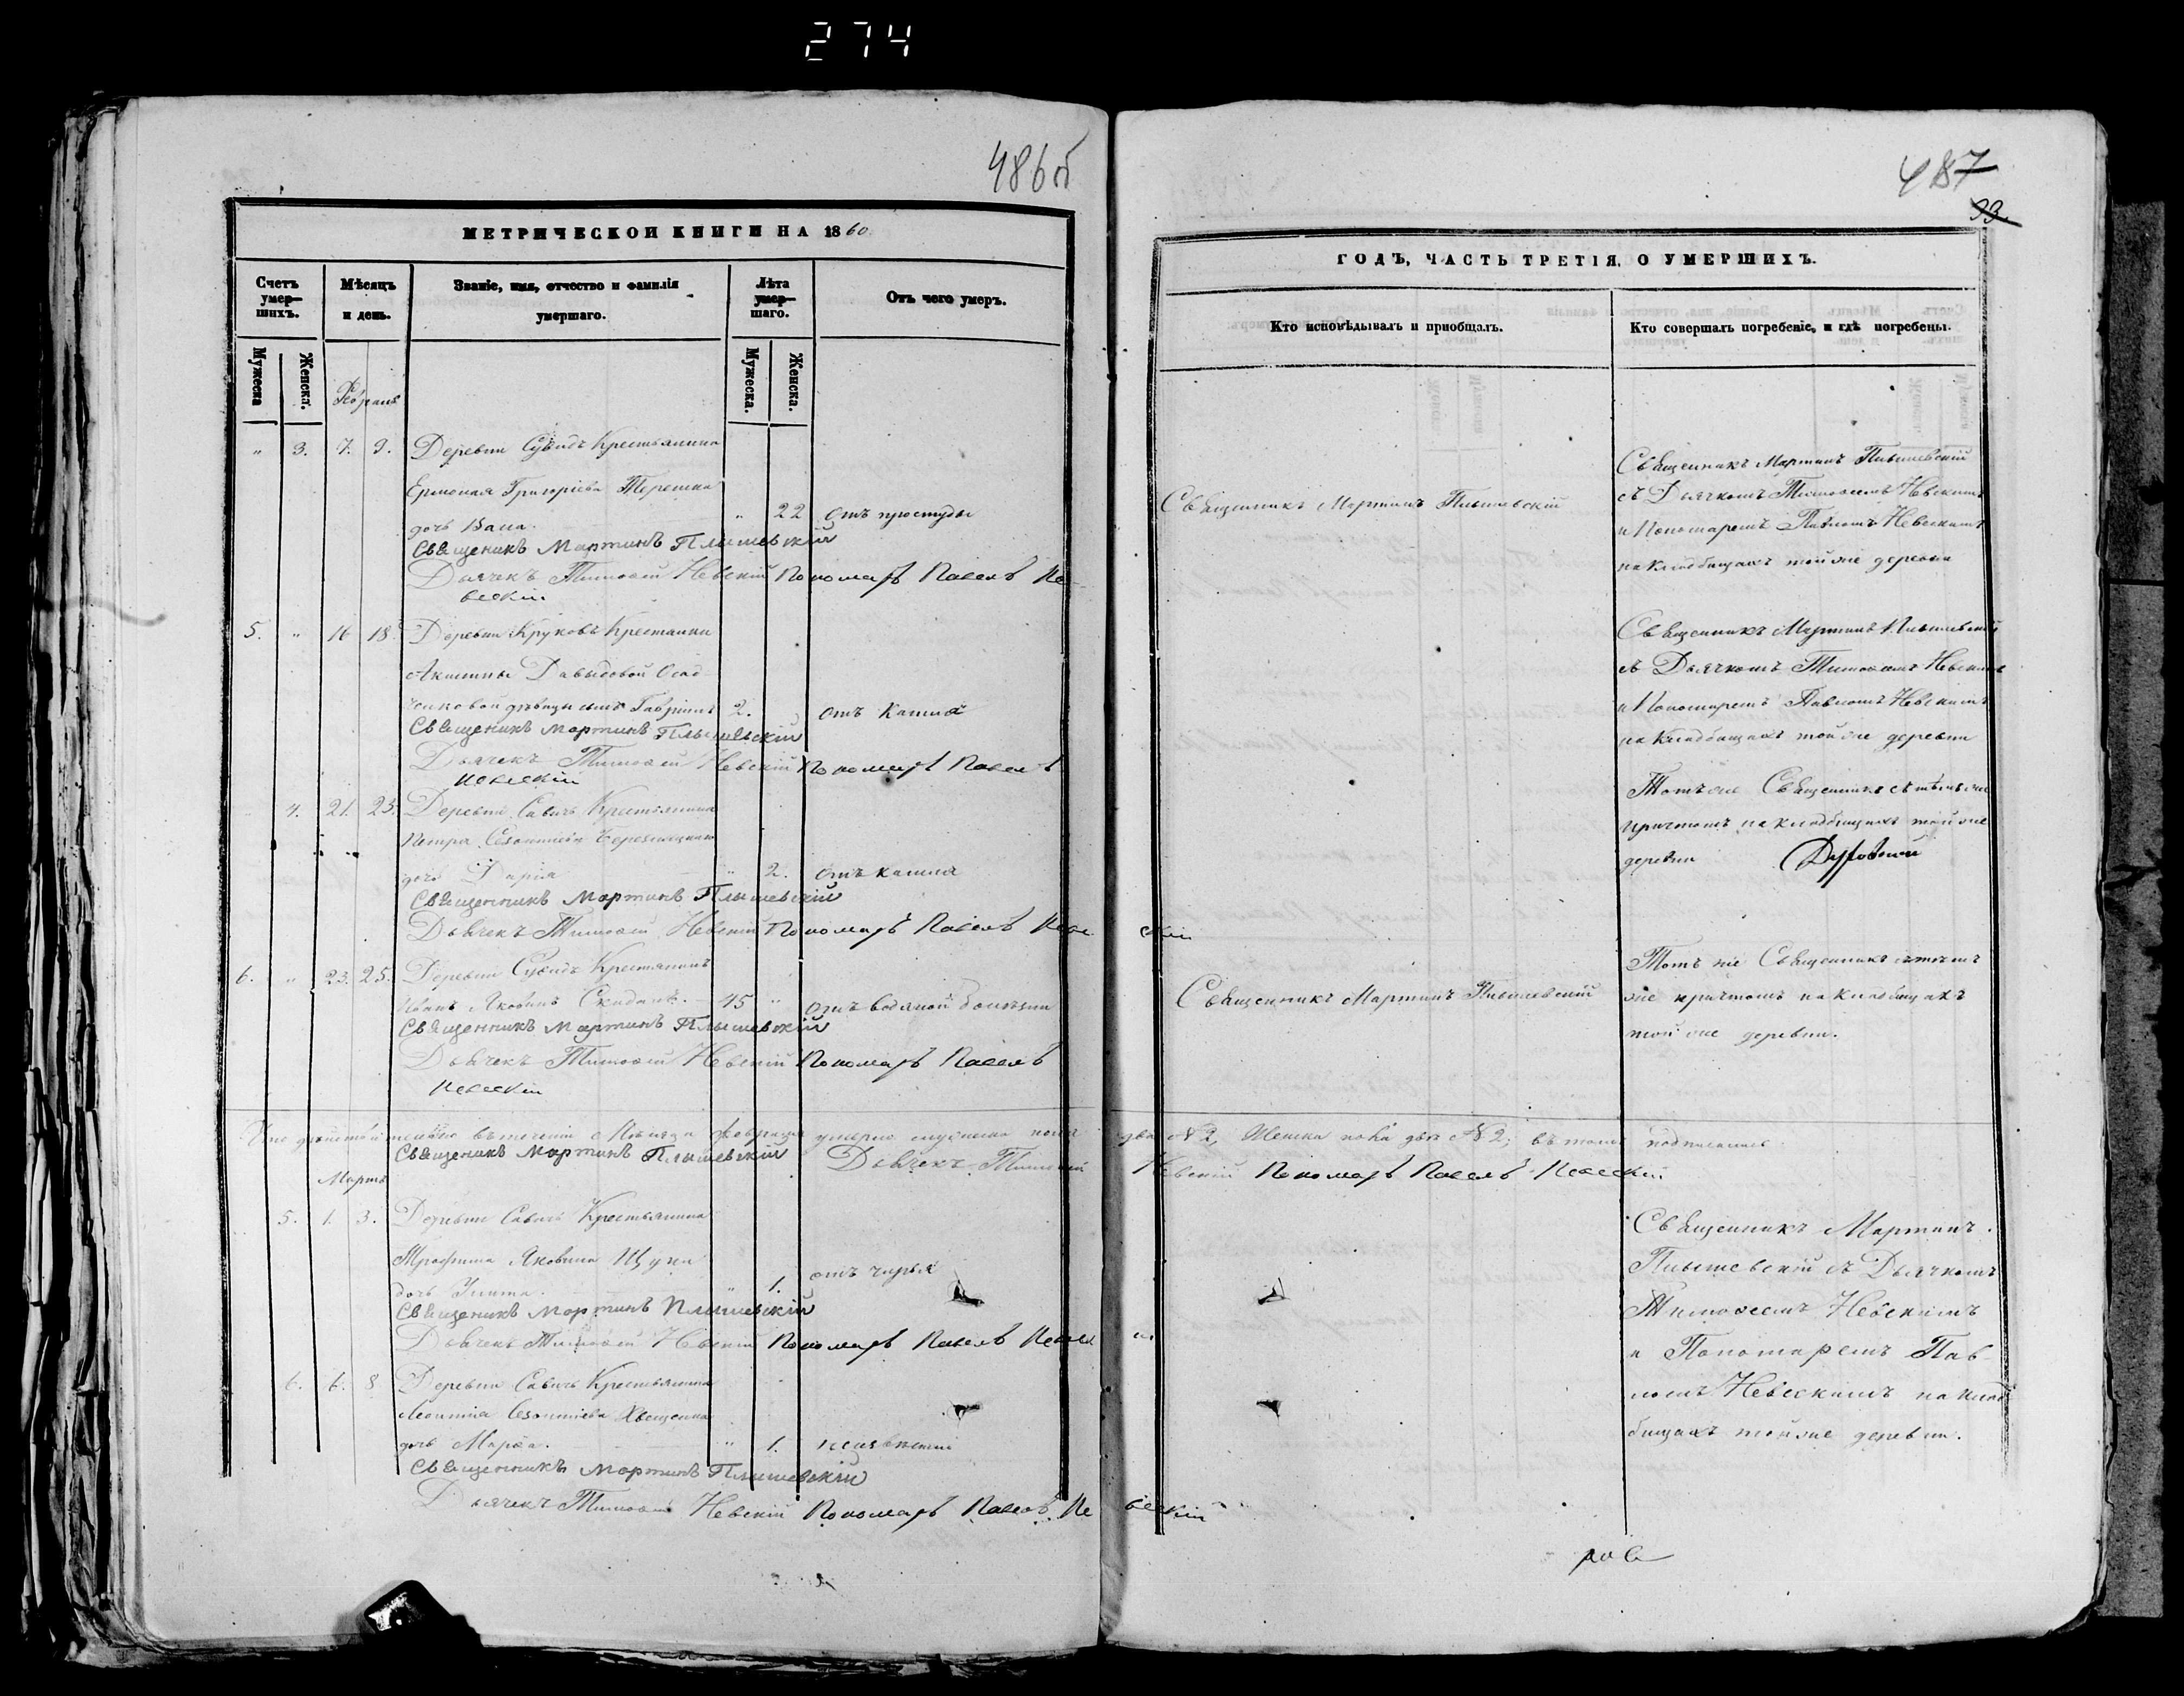 274
486 об
МЕТРИЧЕСКОЙ КНИГИ НА 1860
Счетъ умер-шихъ.
Мѣсяцъ и день.
Званіе, имя, отчество и фамилія умершаго.
Лѣта умер-шаго.
Отъ чего умеръ.
Мужеска
Женска.
Мужеска.
Женска.
" 3. 7. 9. Деревни Сувидъ Крестьянина
Григоріева Терешка
дочь " 22 отъ простуды
Священикъ Мартинъ Плышевскій
Дьячекъ Тимофей Невскій Пономарь Павелъ Не-
вескій
5. " 16 18. Деревни Круковъ Крестьянки
Акилины Давыдовой Осад-
чиковой дѣвицы сынъ 2. отъ кашля
Священикъ Мартинъ Плышевскій
Дьячекъ Тимофей Невскій Пономарь Павелъ
Невескій
4. 21. 23. Деревни Савичь Крестьянина
Петра
дочь Дарія " 2. отъ кашля
Священникъ Мартинъ Плышевскій
Дьячекъ Тимофей Невскій Пономарь Павелъ Невескій
6. " 23. 25. Деревни Сувидъ Крестьянинъ
Иванъ Яковлевъ 45 " отъ водяной болѣзни
Священникъ Мартинъ Плышевскій
Дьячекъ Тимофей Невскій Пономарь Павелъ
Невескій
Что действительно въ теченіи Мѣсяца февраля умерло мужеска пола два № 2, Женска пола два № 2; въ томъ подписались.
Священикъ Мартинъ Плышевскій Дьячекъ Тимофей Невскій Пономарь Павелъ Невескій
Мартъ
5. 1. 3. Деревни Савичь Крестьянина
Трофима Яковлева
дочь " 1. отъ чирья
Священикъ Мартинъ Плышевскій
Дьячекъ Тимофей Невскій Пономарь Павелъ Невескій
6. 6. 8. Деревни Савичь Крестьянина
Леонтія
дочь Марфа. " 1. неизвестно
Священникъ Мартинъ Плышевскій
Дьячекъ Тимофей Невскій Пономарь Павелъ Невескій
487
99.
ГОДЪ, ЧАСТЬ ТРЕТІЯ, О УМЕРШИХЪ.
Кто исповѣдывалъ и пріобщалъ.
Кто совершалъ погребеніе, и гдѣ погребены.
Священникъ Мартинъ Плышевскій
Священникъ Мартинъ Плышевскій
съ Дьячкомъ Тимофеемъ Невскимъ
и Пономаремъ Павломъ Невескимъ
на кладбищахъ той же деревни
Священникъ Мартинъ Плышевскій
съ Дьячкомъ Тимофеемъ Невскимъ
и Пономаремъ Павломъ Невескимъ
на кладбищахъ той же деревни
Тотъ же Священникъ съ тѣмъ же
причтомъ на кладбищахъ той же
деревни
Священникъ Мартинъ Плышевскій
Тотъ же Священникъ съ тѣмъ
же причтомъ на кладбищахъ
той же деревни.
Священникъ Мартинъ
Плышевскій съ Дьячкомъ
Тимофеемъ Невскимъ
и Пономаремъ Пав-
ломъ Невескимъ на клад-
бищахъ той же деревни.